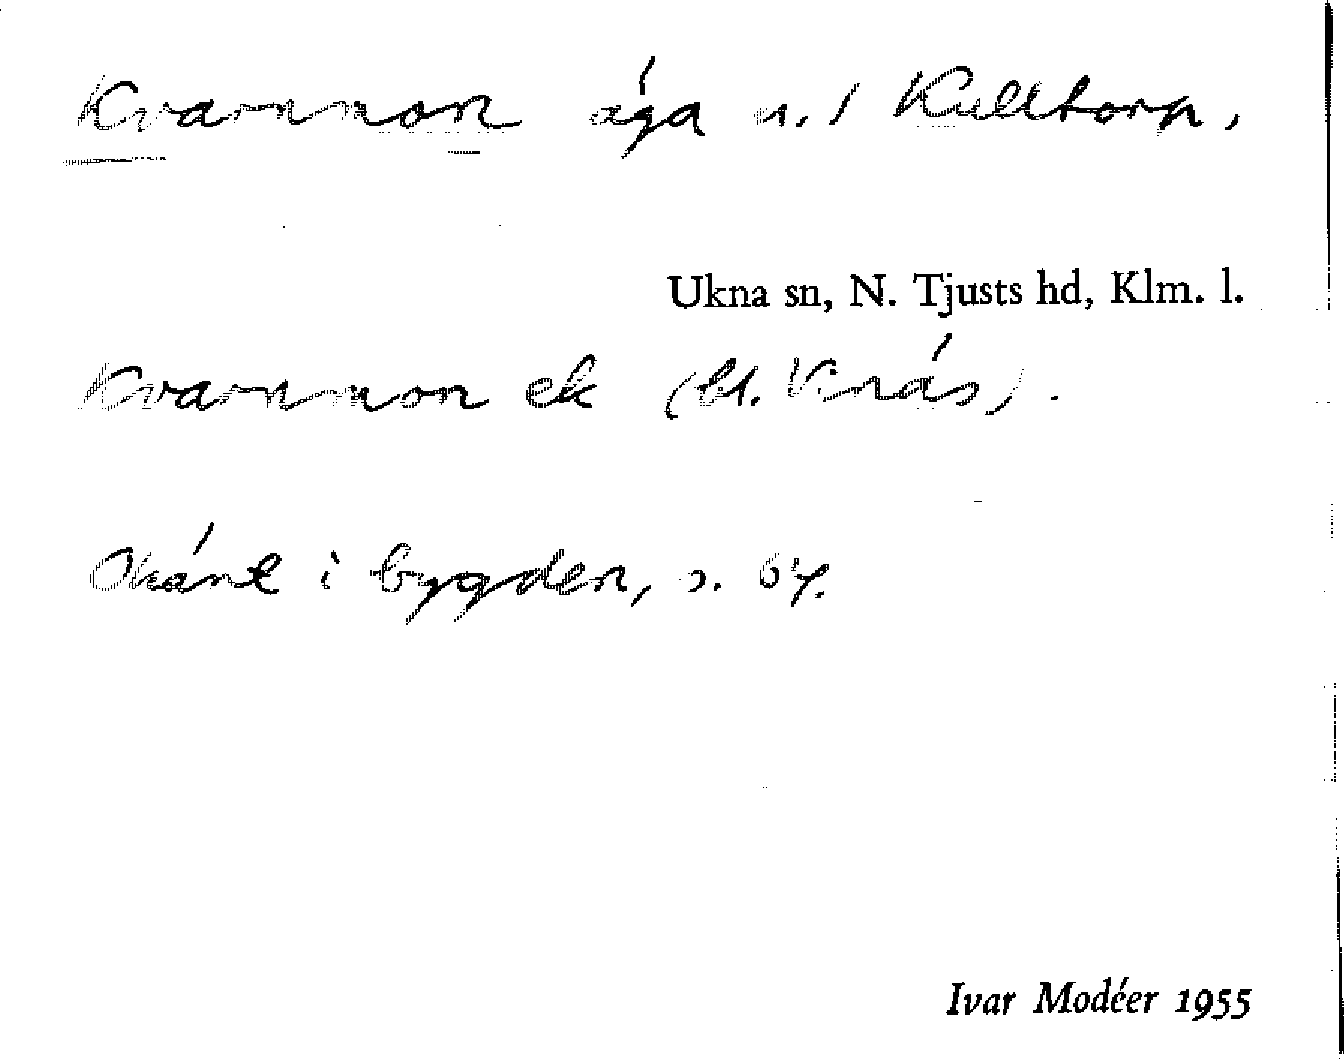 Kvarnmon äga u. / Kulltorp,
Ukna sn, N. Tjusts hd, Klm. l.
Kvarnmon ek (bl. Virås).
Okänt i bygden, s. 67.
Ivar Modéer 1955